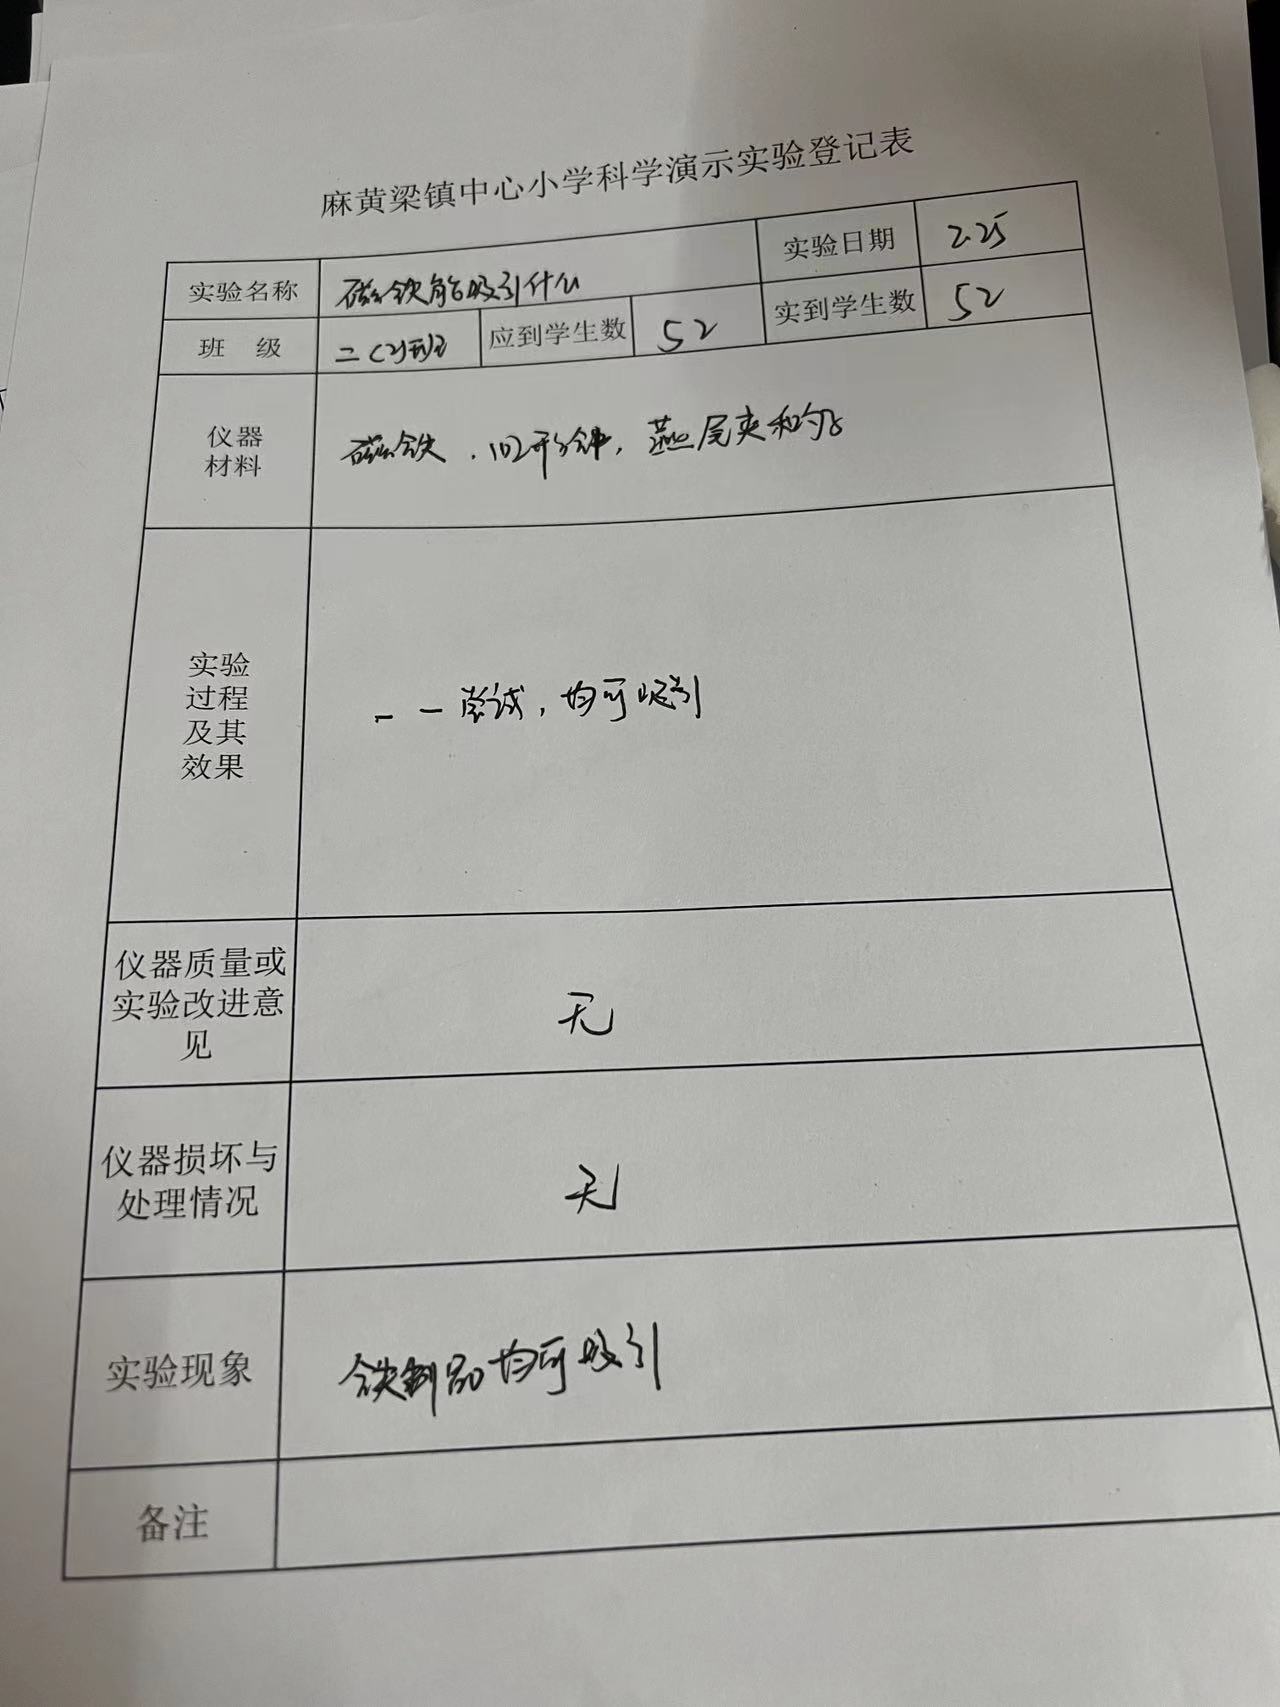 麻黄梁镇中心小学科学演示实验登记表
实验名称 磁铁能吸引什么 实验日期 2.25
班 级 二(2)班 应到学生数 52 实到学生数 52
仪器
材料
磁铁、回形针,燕尾夹和勺子
实验
过程
及其
效果
一一尝试,均可吸引
仪器质量或
实验改进意
见
无
仪器损坏与
处理情况
无
实验现象 铁制品均可吸引
备注